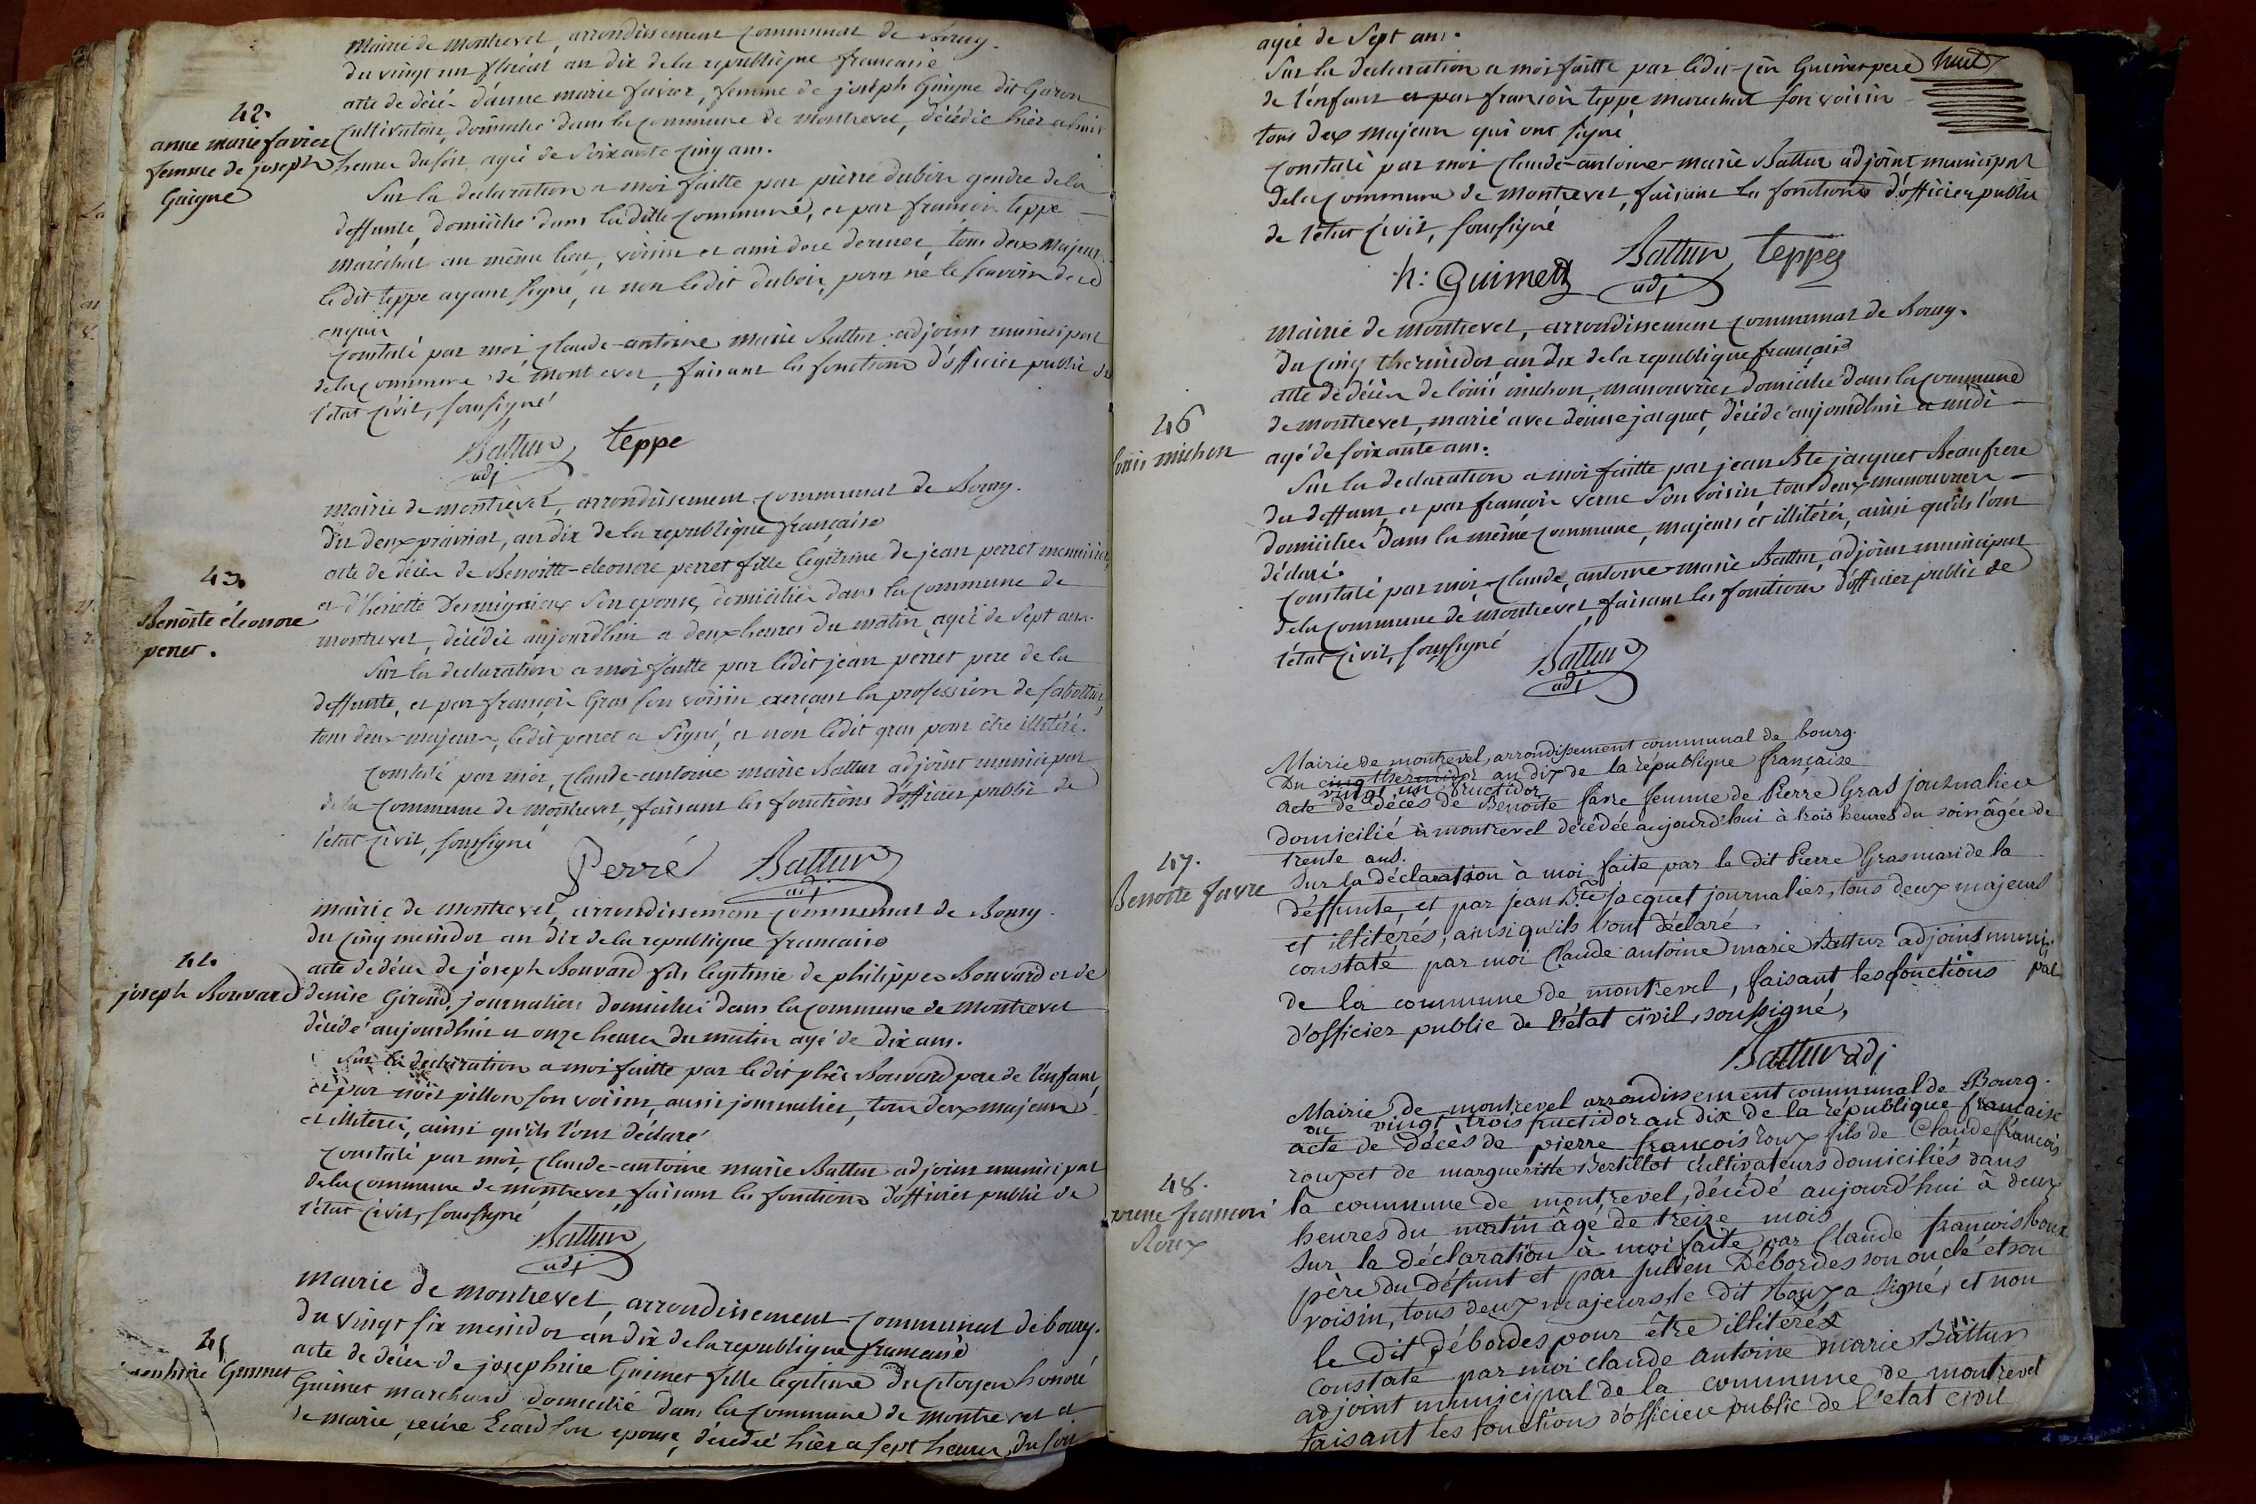 mairie de montrevel, arrondissement communal de Bourg.
du vingt un floréal an dix de la republique francaise
acte de décès d'anne marie favier, femme de joseph Gaigne dit Goron
42.
anne marie favier
femme de joseph
Gaigne
cultivateur, domicilié dans la commune de montrevel, décédée hier a huit
heures du soir agée de soixante cinq ans.
Sur la declaration a moi faitte par pierre dubois gendre de la
deffunte, domicilié dans laditte commune, et par françois teppe
maréchal au même lieu, voisin et ami de ce dernier, tous deux majeurs
ledit teppe ayant signé, et non ledit dubois, pour ne le scavoir de ce
enquis
constaté par moi, claude-antoine marie Battur adjoint municipal
de la commune de montrevel, faisant les fonctions d'officier public de
l'état civil, soussigné
Battur teppe
adj
mairie de montrevel, arrondissement communal de Bourg.
du deux prairial, an dix de la republique française
43.
Benoite éléonore
perret.
acte de décès de Benoitte-eleonore perret fille legitime de jean perret menuisier,
et d'heriette Dermignieux son epouse, domiciliés dans la commune de
montrevel, décédée aujourd'hui a deux heures du matin, agée de sept ans.
Sur la declaration a moi faitte par ledit jean perret pere de la
deffunte, et par françois Gras son voisin exerçant la profession de sabottier,
tous deux majeurs, ledit perret a signé, et non ledit gras pour être illitéré.
constaté par moi, claude-antoine marie Battur adjoint municipal
de la commune de montrevel, faisant les fonctions d'officier public de
l'état civil, soussigné
Perré Battur
adj
mairie de montrevel, arrondissement communal de Bourg.
du cinq messidor an dix de la republique francaise
44.
joseph Bouvard
acte de décès de joseph Bouvard fils legitime de philippe Bouvard et de
denise Giroud, journaliers domiciliés dans la commune de montrevel
décédé aujourdhui a onze heures du matin agé de dix ans.
Sur la declaration a moi faitte par ledit phée Bouvard pere de l'enfant,
et par noël pillon son voisin, aussi journalier, tous deux majeurs
et illiterés, ainsi qu'ils l'ont déclaré
constaté par moi, claude-antoine marie Battur adjoint municipal
de la commune de montrevel, faisant les fonctions d'officier public de
l'état civil, soussigné
Battur
adj
mairie de montrevel, arrondissement communal de bourg.
du vingt six messidor an dix de la republique francaise
45
josephine Guimet
acte de décès de josephine Guimet fille legitime du citoyen honoré
Guimet marchand domicilié dans la commune de montrevel et
de marie reine Ecard son epouse, decedée hier a sept heures du soir
agée de sept ans.
Sur la declaration a moi faitte par ledit cen Guimet pere
de l'enfant et par françois teppe marechal son voisin
tous deux majeurs qui ont signé
constaté par moi claude-antoine-marie Battur adjoint municipal
de la commune de montrevel, faisant les fonctions d'officier public
de l'état civil, soussigné
h: Guimet Battur teppe
adj
mairie de montrevel, arrondissement communal de Bourg.
du cinq thermidor an dix de la republique français
46
louis michon
acte de décès de louis michon, manouvrier domicilié dans la commune
de montrevel, marié avec denise jacquet, décédé aujourdhui a midi
agé de soixante ans.
Sur la declaration a moi faitte par jean Bte jacquet Beaufrere
du deffunt, et par françois verne son voisin tous deux manouvriers
domiciliés dans la même commune, majeurs et illitérés, ainsi qu'ils l'ont
déclaré.
constaté par moi, claude antoine marie Battur, adjoint municipal
de la commune de montrevel, faisant les fonctions d'officier public de
l'état civil, soussigné
Battur
adj
Mairie de montrevel, arrondissement communal de bourg.
Du cinq thermidor an dix de la république française
vingt un fructidor
47.
Benoite favre
acte de décès de Benoite favre femme de Pierre Gras journalier
domicilié à montrevel décédée aujourd'hui à trois heures du soir âgée de
trente ans.
Sur la déclaration à moi faite par le dit Pierre Gras mari de la
déffunte, et par jean Bte jacquet journalier, tous deux majeurs
et illitérés, ainsi qu'ils l'ont déclaré
constaté par moi Claude antoine marie Battur adjoint munici
pal
de la commune de montrevel, faisant les fonctions
d'officier public de l'état civil, soussigné,
Battur adj
Mairie de montrevel arrondissement communal de Bourg.
du vingt trois fructidor an dix de la république française
48.
pierre francois
Roux
acte de décès de pierre françois roux fils de Claude françois
roux et de margueritte Bertillot cultivateurs domiciliés dans
la commune de montrevel, décédé aujourd'hui à deux
heures du matin âgé de treize mois
Sur la déclaration à moi faite par Claude françois Roux
père du défunt et par julien Débordes son oncle et son
voisin, tous deux majeurs, le dit Roux a signé, et non
le dit débordes pour être illitéré
constaté par moi claude antoine marie Battur
adjoint municipal de la commune de montrevel
faisant les fonctions d'officier public de l'état civil